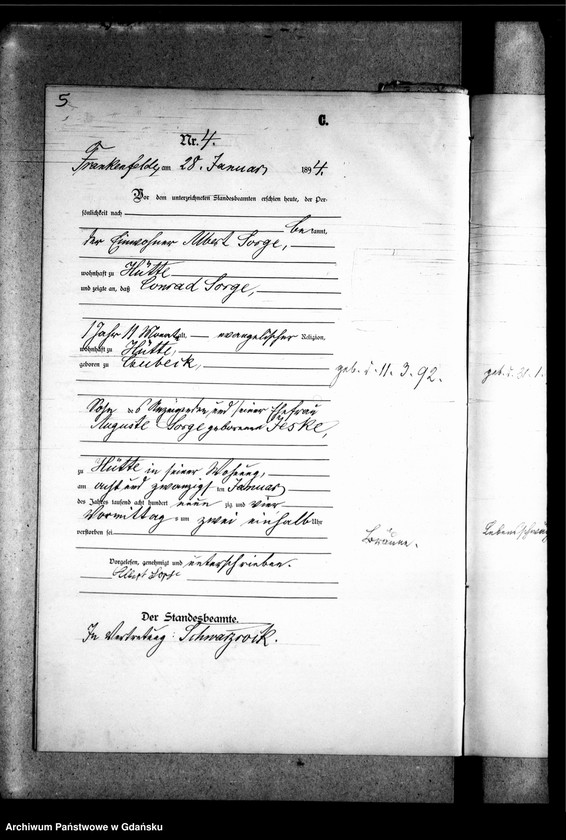 5
C.
Nr. 4.
Frankenfelde, am 28. Januar 1894.
Vor dem unterzeichneten Standesbeamten erschien heute, der Per-
sönlichkeit nach
be kannt,
der Einwohner Albert Sorge,
wohnhaft zu Hütte
und zeigte an, daß Conrad Sorge,
1 Jahr 11 Monat alt, evangelischer Religion,
wohnhaft zu Hütte,
geboren zu
geb. d. 11. 3. 92.
geb. d. 21. 1.
Sohn des Anzeigenden und seiner Ehefrau
Auguste Sorge geborenen Jeske,
zu Hütte in seiner Wohnung,
am acht und zwanzigsten Januar
des Jahres tausend acht hundert neun zig und vier
Vormittags um zwei einhalb Uhr
verstorben sei
Bräune.
Lebensschwäche
Vorgelesen, genehmigt und unterschrieben.
Albert Sorge
Der Standesbeamte.
In Vertretung: Schwarzrock.
Archiwum Państwowe w Gdańsku